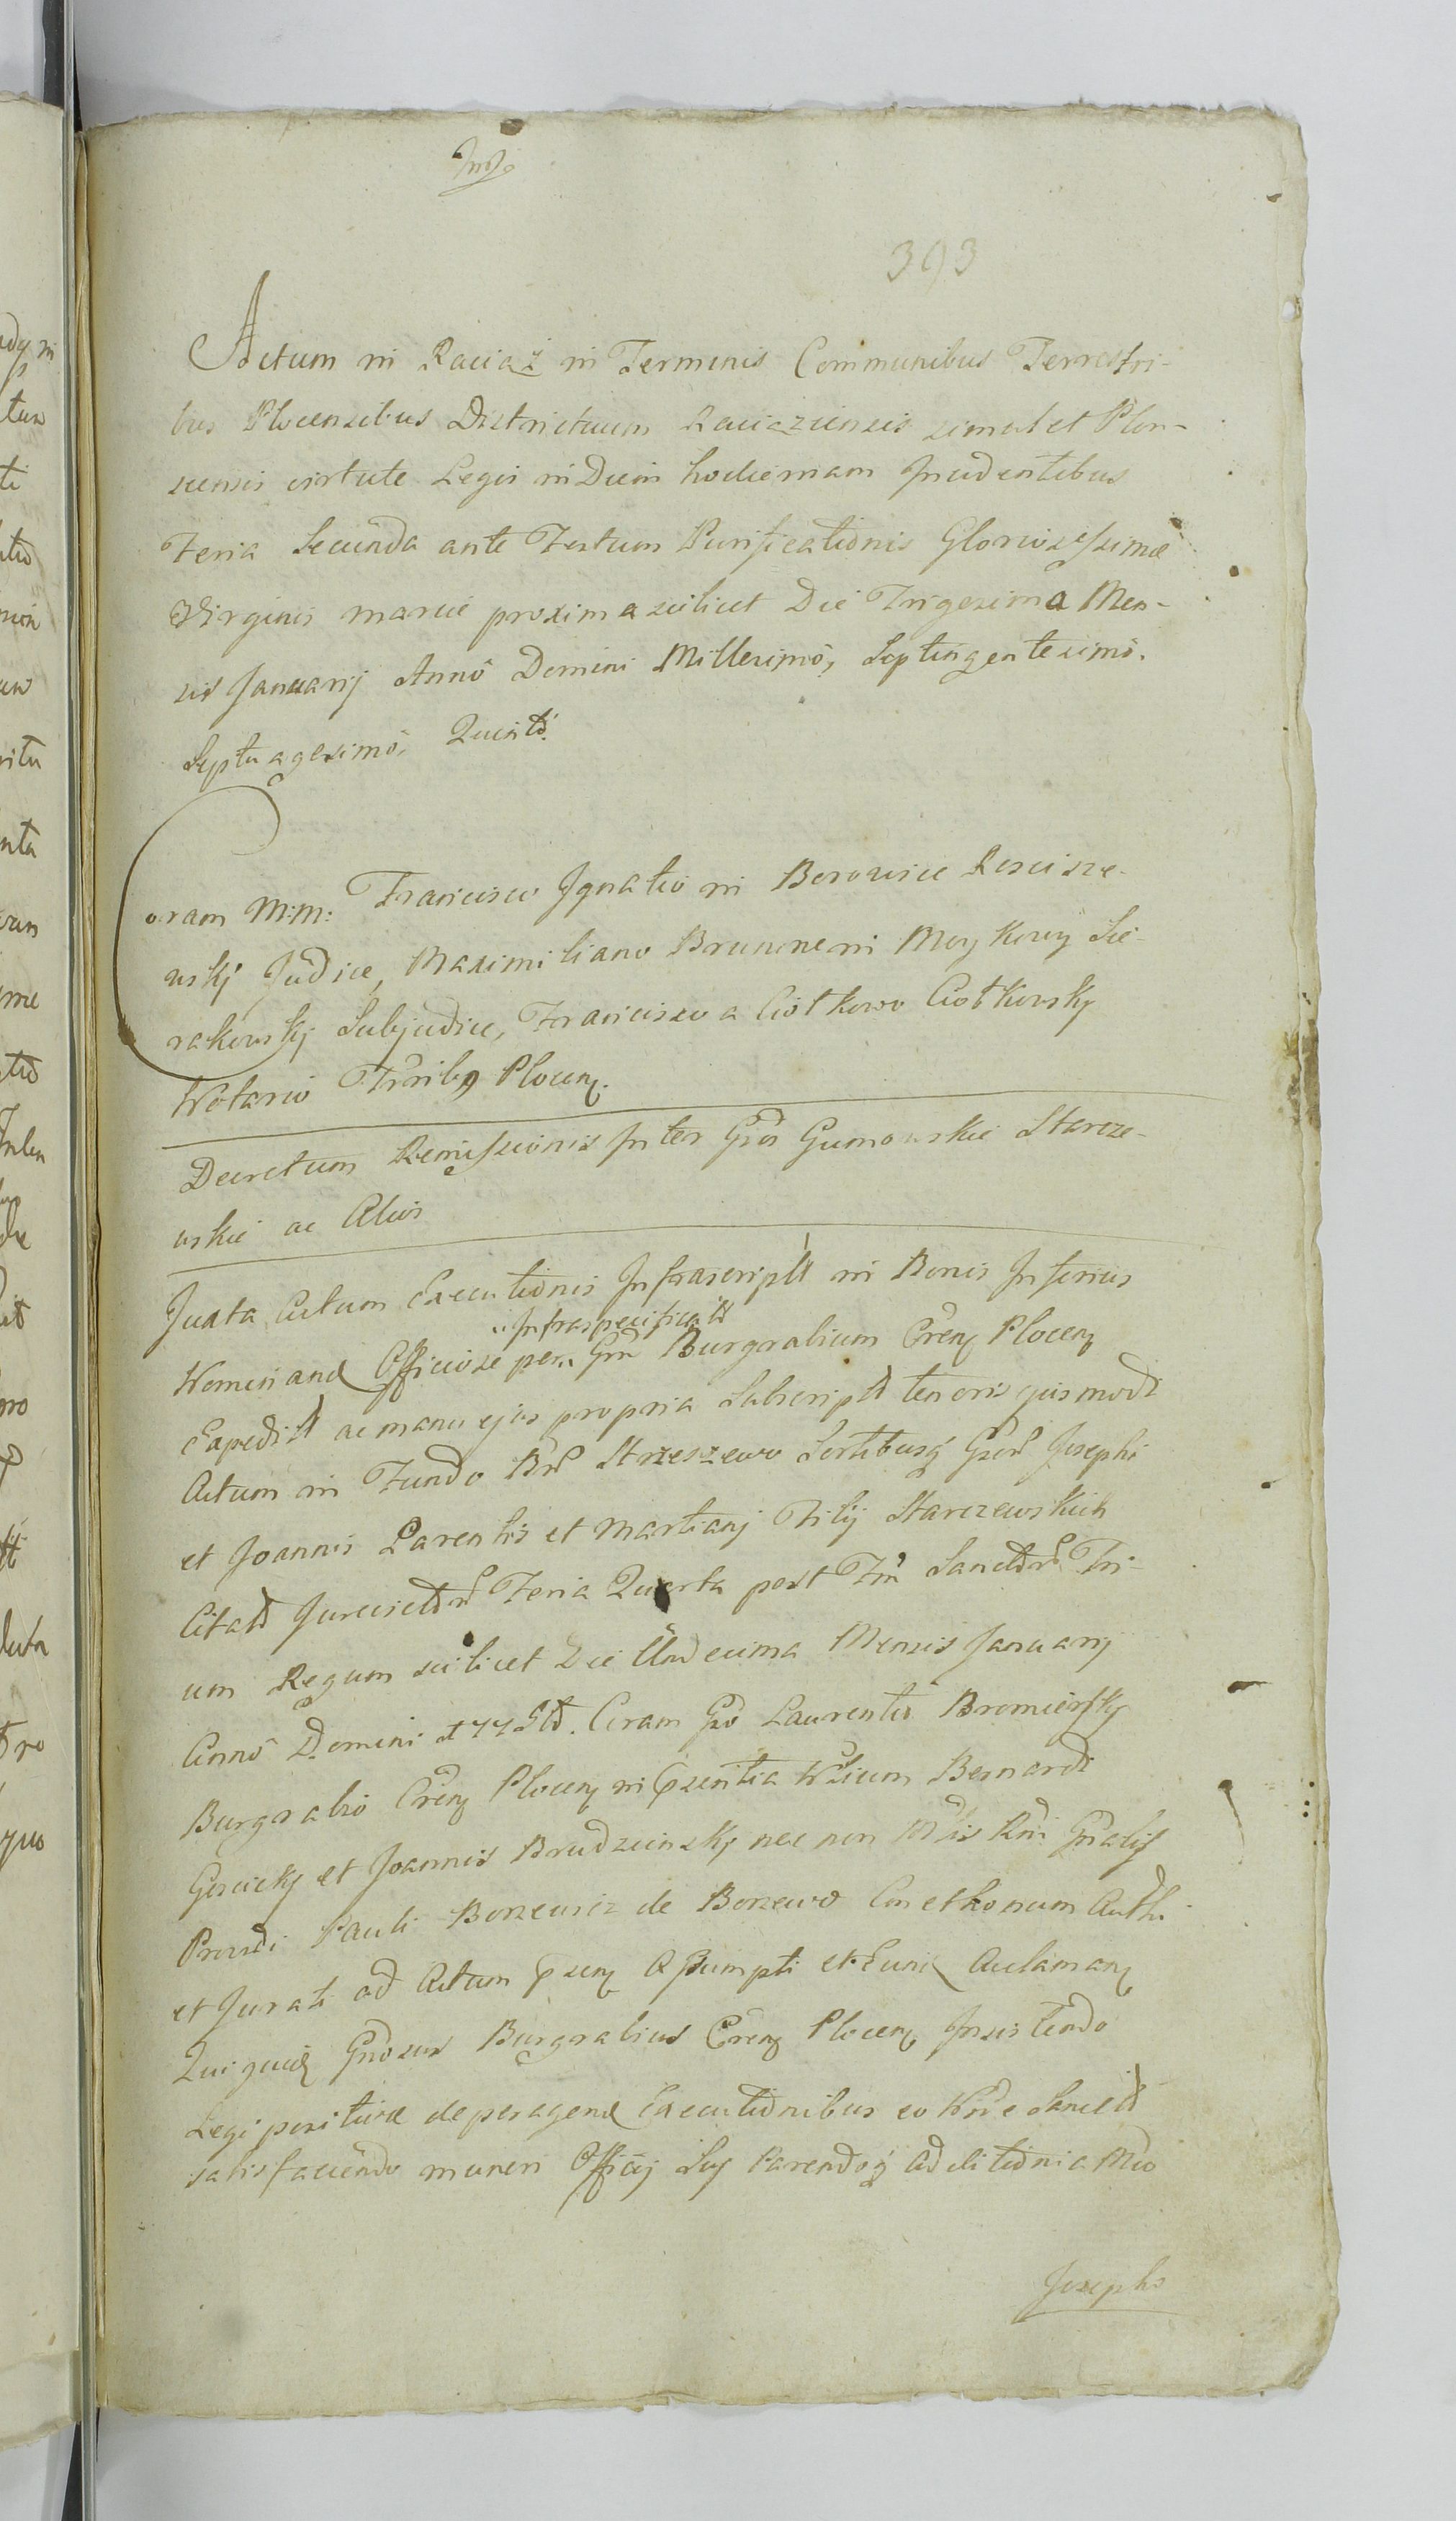 393
Actum in Raciąż in Terminis Communibus Terrestri-
bus Plocensibus Districtuum Raciąziensis simul et Plon-
scensis virtute Legis in Diem hodiernam Incidentibus
Feria Secunda ante Festum Purificationis Gloriosissimæ
Virginis Mariæ proxima scilicet Die Trigesima Men-
sis Januarij Annô Domini Millesimô, Septingentesimô.
Septuagesimô, Quintô.
Coram M:M: Francisco Ignatio in Borowice Koscisze-
wskj Judice, Maximiliano Brunone in Moykowy Sie-
rakowskj Subjudice, Francisco a Ciółkowo Ciołkowskj
Notario Trribq Plocen.
Decretum Remissionis Inter Gsos Gumowskie Starcze-
wskie ac Alios
Juxta Actum Executionis Infrascriptt in Bonis Inferius
Infraspecificatt
Nominand Officiose per Gm Burgrabium Cren Plocen
Expeditt ac manu ejus propria Subscriptt tenoris ejusmodi
Actum in Fundo Br Strzeszewo Sortibusq Gsor Josephi
et Joannis Parentis et Martianj Filij Starczewskich
Citatt Jurisditt Feria Quarta post Fm Sanctor Tri-
um Regum scilicet Die Undecima Mensis Januarij
Annô Domini 1775tô. Coram Gso Laurentio Bromierskj
Burgrabio Cren Plocen in Pzentia Nlium Bernardi
Gosickj et Joannis Brudzinskj nec non Mlis Rni Gnalis
Providi Pauli Borzewicz de Borzewo Cmethonum Auth
et Jurati ad Actum pzen Assumpti et Eund Aclaman
Quiquid Gnosus Burgrabius Cren Plocen Insistendo
Legi positivæ de peragend Executionibus eo Nne Sancitt
satisfaciendo muneri Officij Sui Parendoq Ad
Josephi